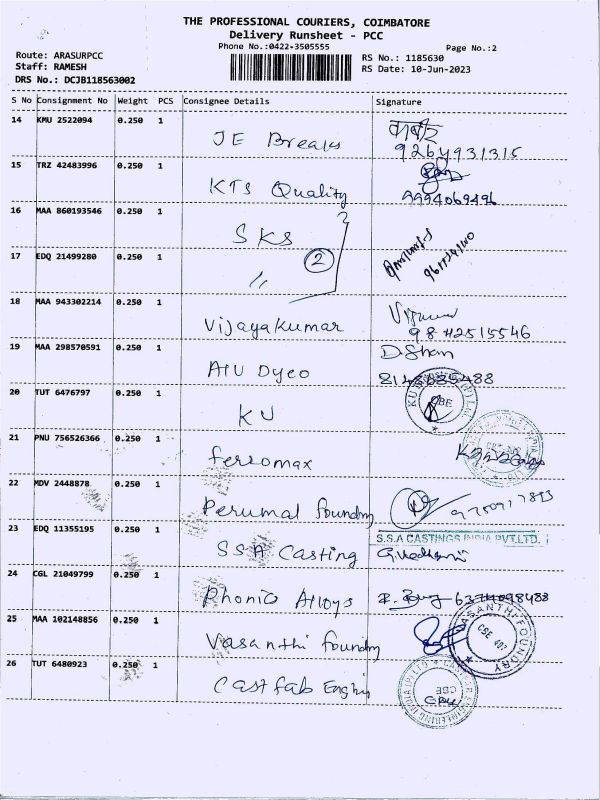 THE PROFESSIONAL COURIERS, COIMBATORE
Delivery Runsheet - PCC
Phone No.:0422-3505555
Page No.:2
Route: ARASURPCC
Staff: RAMESH
DRS No.: DCJB118563002
RS No.: 1185630
RS Date: 10-Jun-2023
S No Consignment No Weight PCS Consignee Details Signature
14 KMU 2522094 0.250 1
JE Breaks
9264931315
15 TRZ 42483996 0.250 1
KTS Quality
9994069496
16 MAA 860193546 0.250 1
SKS
17 EDQ 21499280 0.250 1
2
〃
18 MAA 943302214 0.250 1
Vijayakumar
9842515546
19 MAA 298570591 0.250 1
D. Sham
20 TUT 6476797 0.250 1
KU
21 PNU 756526366 0.250 1
ferromax
22 MDV 2448878 0.250 1
Perumal foundry
23 EDQ 11355195 0.250 1
SSA Casting
S.S.A CASTINGS INDIA PVT.LTD.
24 CGL 21049799 0.250 1
Phonic Alloys
6374098488
25 MAA 102148856 0.250 1
Vasanthi foundry
VASANTHI FOUNDRY
26 TUT 6480923 0.250 1
Castfab Enghi
CBE